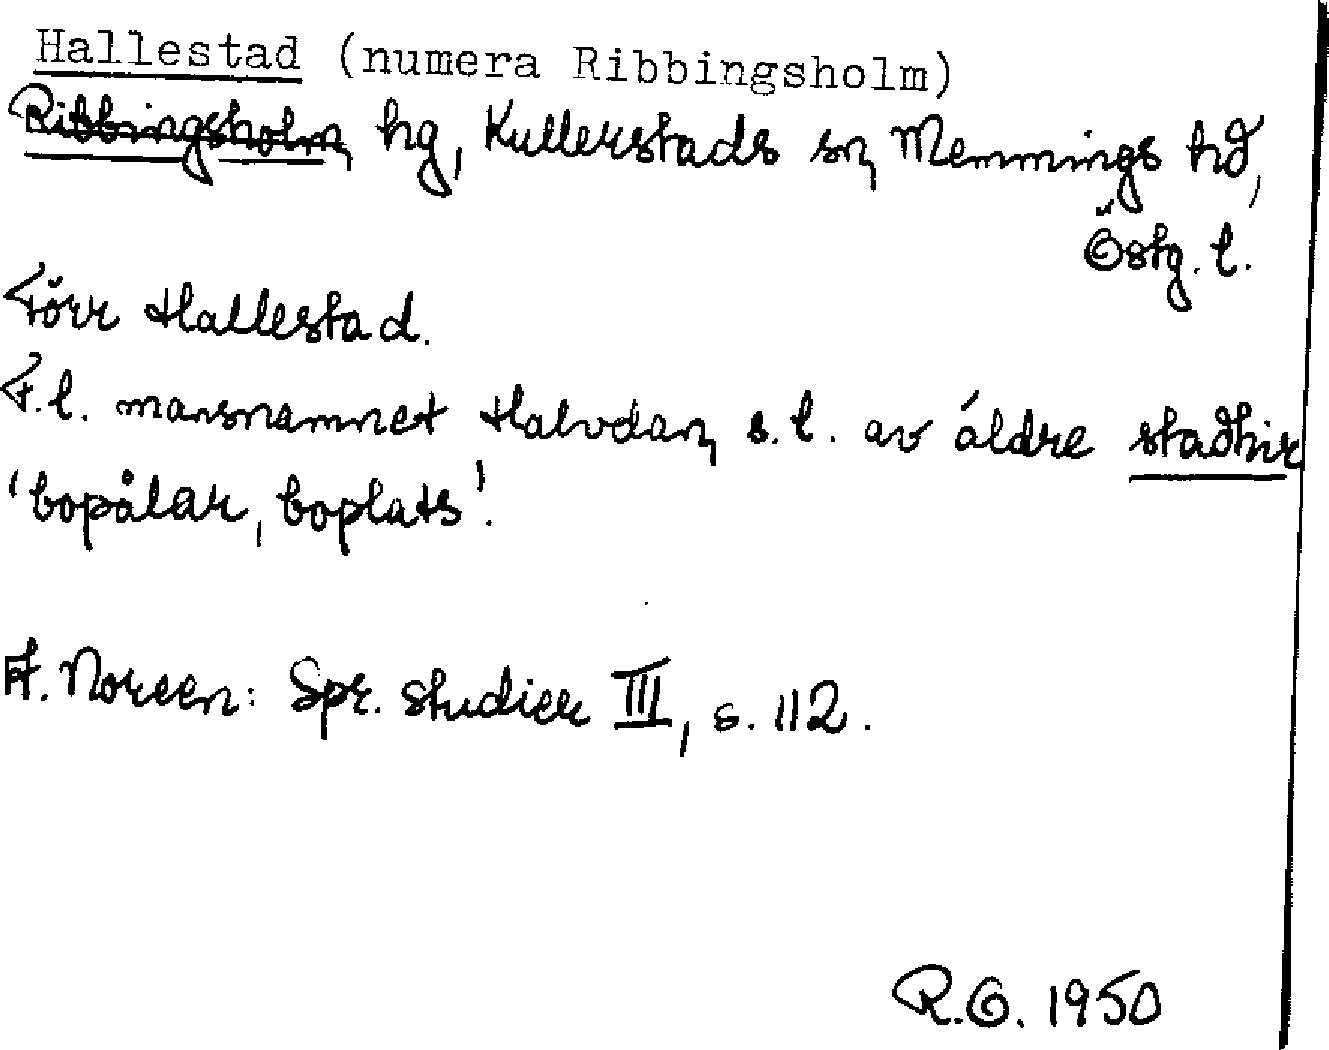 Hallestad (numera Ribbingsholm)
Ribbingsholm hg, Kullerstads sn, Memmings hd,
Östg. l.
Förr Hallestad.
F.l. mansnamnet Halvdan, s.l. av äldre stadhir
'bopålar, boplats'.
A. Noreen: Spr. studier III, s. 112.
R.O. 1950